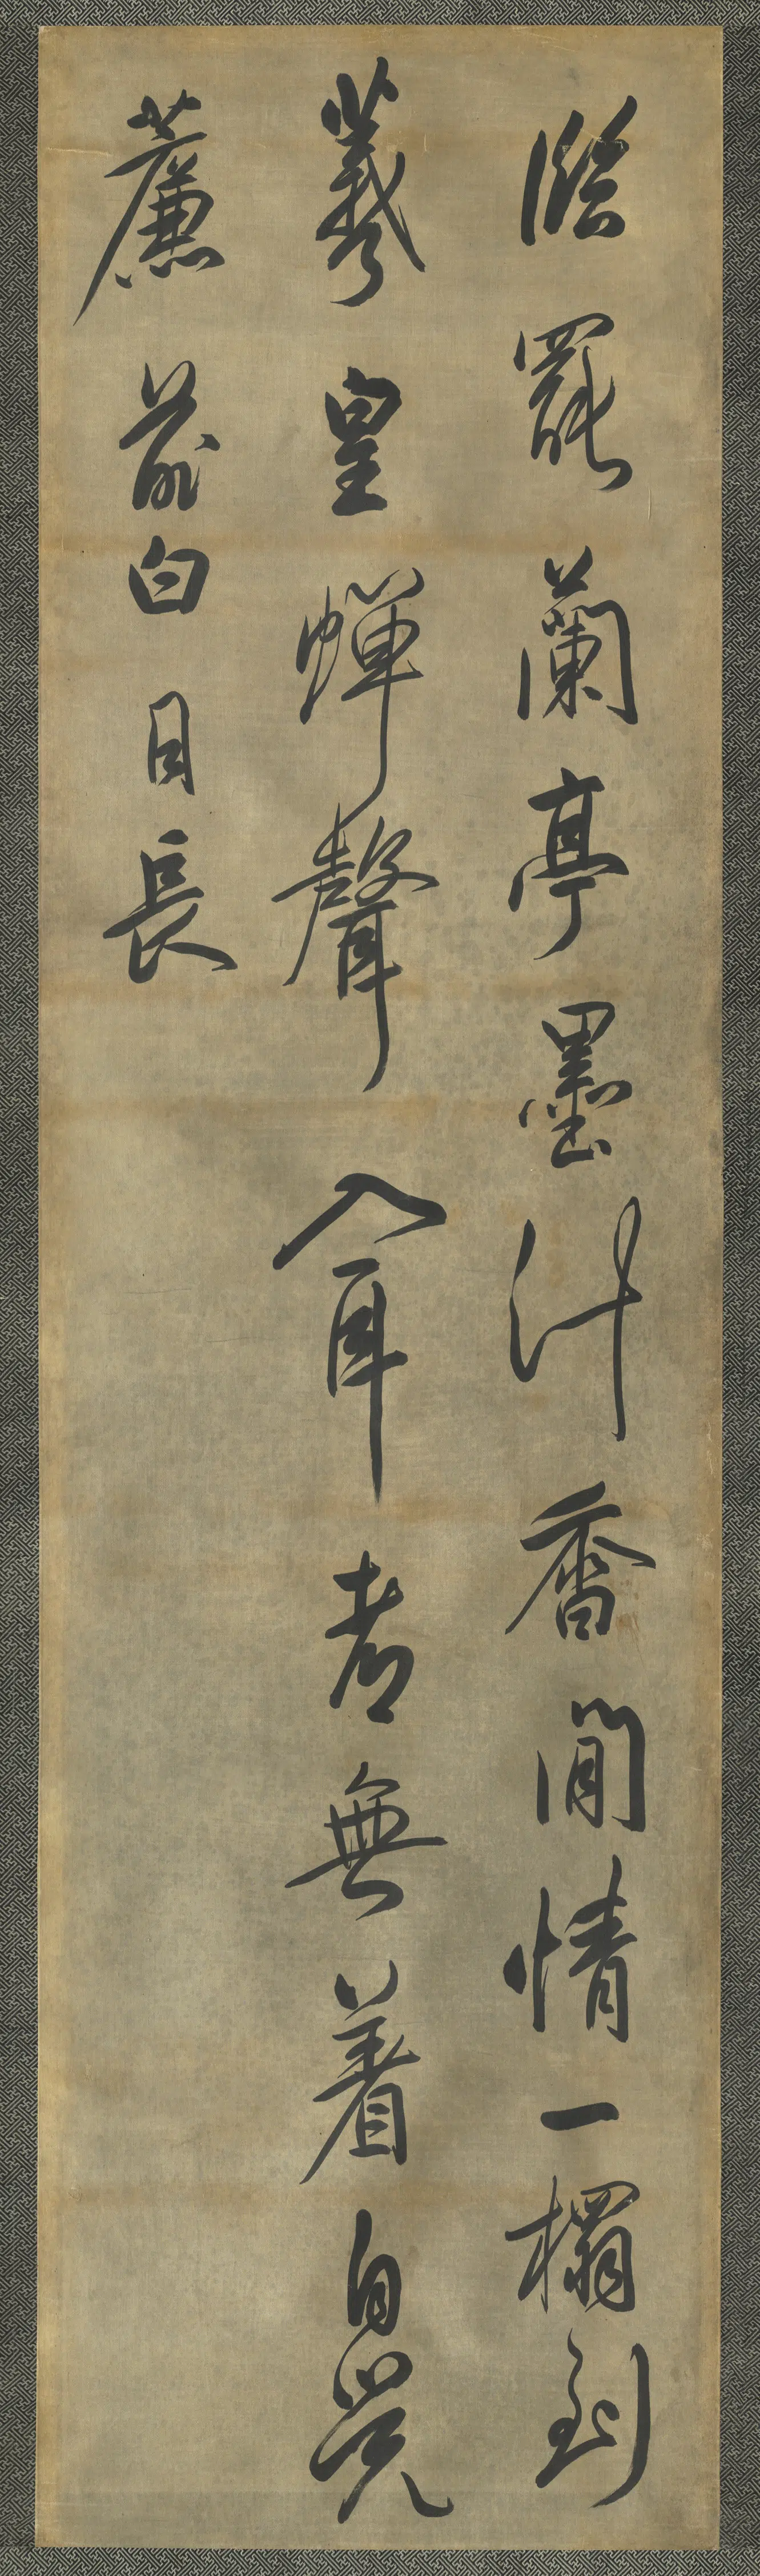 臨罷蘭亭墨汁香閒情一榻到
羲皇蟬聲入耳者無着自覺
薕前白日長